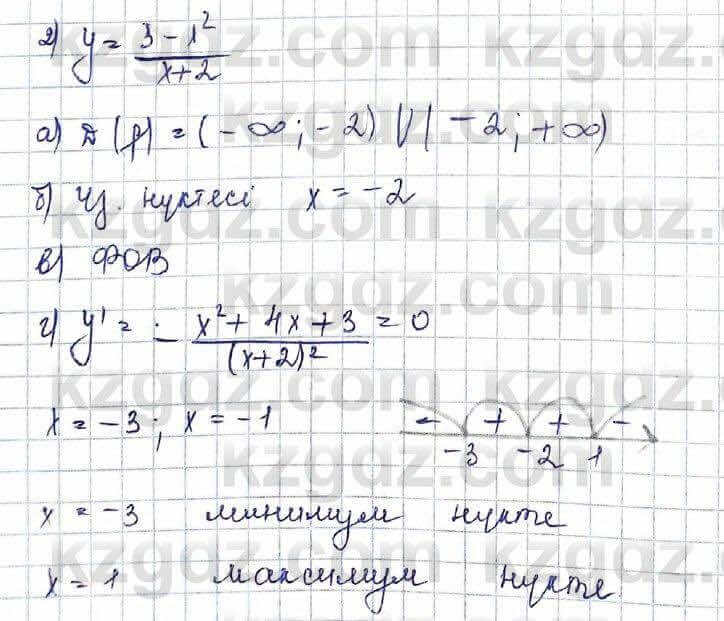 2) y = (3 - 1²)/(x+2)
а) D(f) = (-∞; -2) U (-2; +∞)
б) үз. нүктесі x = -2
в) ФОВ
г) y' = - (x² + 4x + 3)/(x+2)² = 0
x = -3; x = -1
- + + -
-3 -2 1
x = -3 минимум нүкте
x = 1 максимум нүкте
kzgdz.com